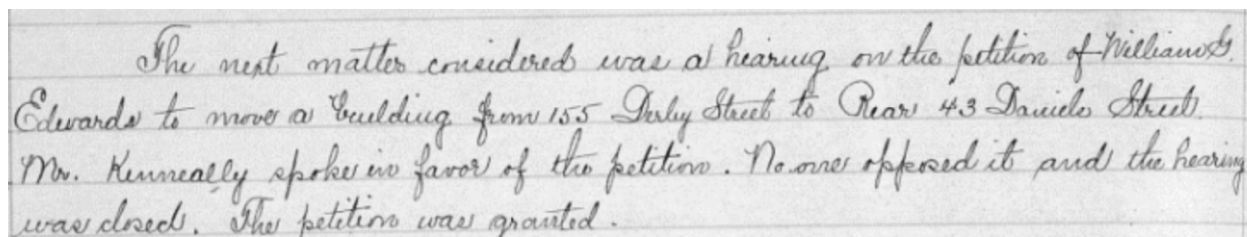 The next matter considered was a hearing on the petition of William G.
Edwards to move a building from 155 Derby Street to Rear 43 Daniels Street.
Mr. Kenneally spoke in favor of the petition. No one opposed it and the hearing
was closed. The petition was granted.